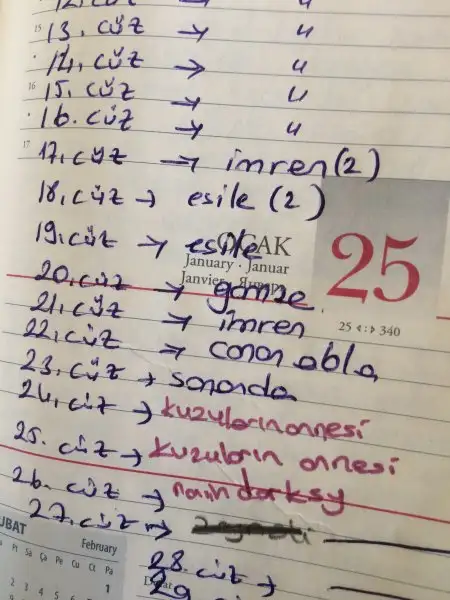 12. cüz → "
15 13. cüz → "
14. cüz → "
16 15. cüz → "
16. cüz → "
17 17. cüz → imren (2)
18. cüz → esile (2)
19. cüz → esile
OCAK
January · Januar
Janvier ·
25
25 340
20. cüz → gamze
21. cüz → imren
22. cüz → canan abla
23. cüz → sonanda
24. cüz → kuzuların annesi
25. cüz → kuzuların annesi
26. cüz →
27. cüz →
28. cüz →
29
UBAT February
Pt Sa Ça Pe Cu Ct Pa
1
2 3 4 5 6